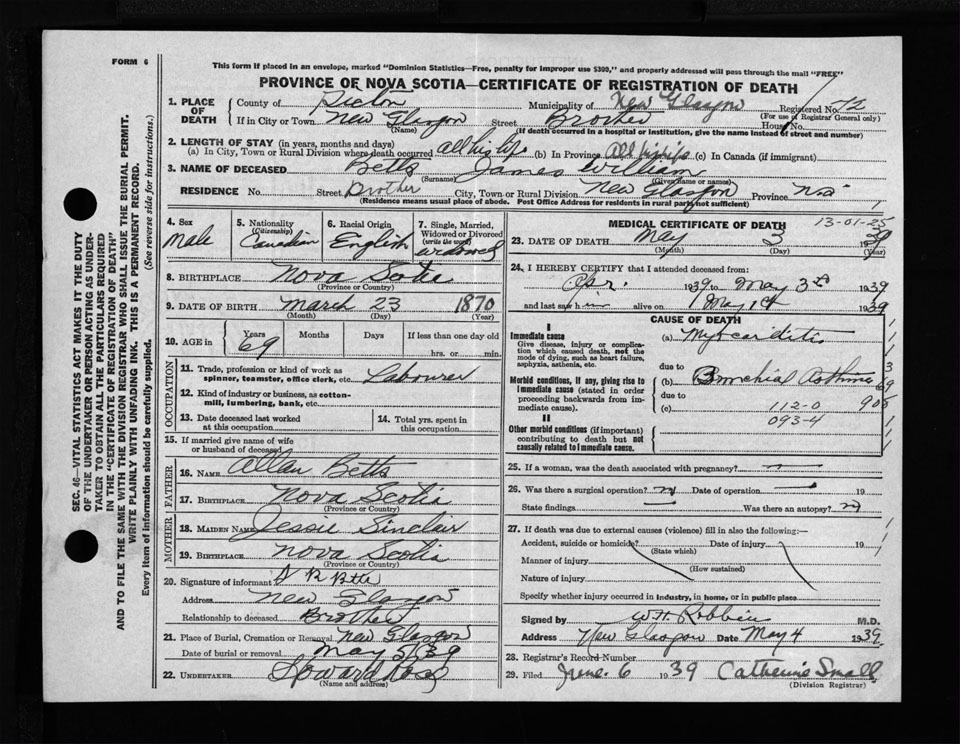 FORM 6
This form if placed in an envelope, marked "Dominion Statistics—Free, penalty for improper use $300," and properly addressed will pass through the mail "FREE"
PROVINCE OF NOVA SCOTIA—CERTIFICATE OF REGISTRATION OF DEATH
1. PLACE OF DEATH
County of Pictou Municipality of New Glasgow Registered No. 12
(For use of Registrar General only)
If in City or Town New Glasgow Street Brother House No.
(Name) (If death occurred in a hospital or institution, give the name instead of street and number)
2. LENGTH OF STAY (in years, months and days)
(a) In City, Town or Rural Division where death occurred all his life (b) In Province all his life (c) In Canada (if immigrant)
3. NAME OF DECEASED Betts James William
(Surname) (Given name or names)
RESIDENCE No. Street Brother City, Town or Rural Division New Glasgow Province N.S.
(Residence means usual place of abode. Post Office Address for residents in rural parts not sufficient)
4. Sex Male
5. Nationality (Citizenship) Canadian
6. Racial Origin English
7. Single, Married, Widowed or Divorced (write the word) widowed
8. BIRTHPLACE Nova Scotia
(Province or Country)
9. DATE OF BIRTH March 23 1870
(Month) (Day) (Year)
10. AGE in Years 69 Months Days If less than one day old hrs. or min.
OCCUPATION
11. Trade, profession or kind of work as spinner, teamster, office clerk, etc. Labourer
12. Kind of industry or business, as cotton-mill, lumbering, bank, etc.
13. Date deceased last worked at this occupation
14. Total yrs. spent in this occupation.
15. If married give name of wife or husband of deceased
FATHER
16. NAME Allan Betts
17. BIRTHPLACE Nova Scotia
(Province or Country)
MOTHER
18. MAIDEN NAME Jessie Sinclair
19. BIRTHPLACE Nova Scotia
(Province or Country)
20. Signature of informant
Address New Glasgow
Relationship to deceased Brother
21. Place of Burial, Cremation or Removal New Glasgow
Date of burial or removal May 5/39
22. UNDERTAKER
(Name and address)
MEDICAL CERTIFICATE OF DEATH 13-01-25
23. DATE OF DEATH May 3 1939
(Month) (Day) (Year)
24. I HEREBY CERTIFY that I attended deceased from:
Apr. 1939 to May 3rd 1939
and last saw him alive on May 1st 1939
CAUSE OF DEATH
I
Immediate cause
Give disease, injury or complication which caused death, not the mode of dying, such as heart failure, asphyxia, asthenia, etc.
(a) Myocarditis
due to
Morbid conditions, if any, giving rise to immediate cause (stated in order proceeding backwards from immediate cause).
(b) Bronchial Asthma
due to
(c) 112-0
093-4
II
Other morbid conditions (if important) contributing to death but not causally related to immediate cause.
25. If a woman, was the death associated with pregnancy?
26. Was there a surgical operation? Date of operation 19
State findings Was there an autopsy?
27. If death was due to external causes (violence) fill in also the following:—
Accident, suicide or homicide? Date of injury 19
(State which)
Manner of injury
(How sustained)
Nature of injury
Specify whether injury occurred in industry, in home, or in public place
Signed by W.H. Robbins M.D.
Address New Glasgow Date May 4 1939
28. Registrar's Record Number
29. Filed June 6 1939 Catherine Small
(Division Registrar)
SEC. 46—VITAL STATISTICS ACT MAKES IT THE DUTY
OF THE UNDERTAKER OR PERSON ACTING AS UNDER-
TAKER TO OBTAIN ALL THE PARTICULARS REQUIRED
IN THE "CERTIFICATE OF REGISTRATION OF DEATH"
AND TO FILE THE SAME WITH THE DIVISION REGISTRAR WHO SHALL ISSUE THE BURIAL PERMIT.
WRITE PLAINLY WITH UNFADING INK. THIS IS A PERMANENT RECORD.
Every item of information should be carefully supplied. (See reverse side for instructions.)